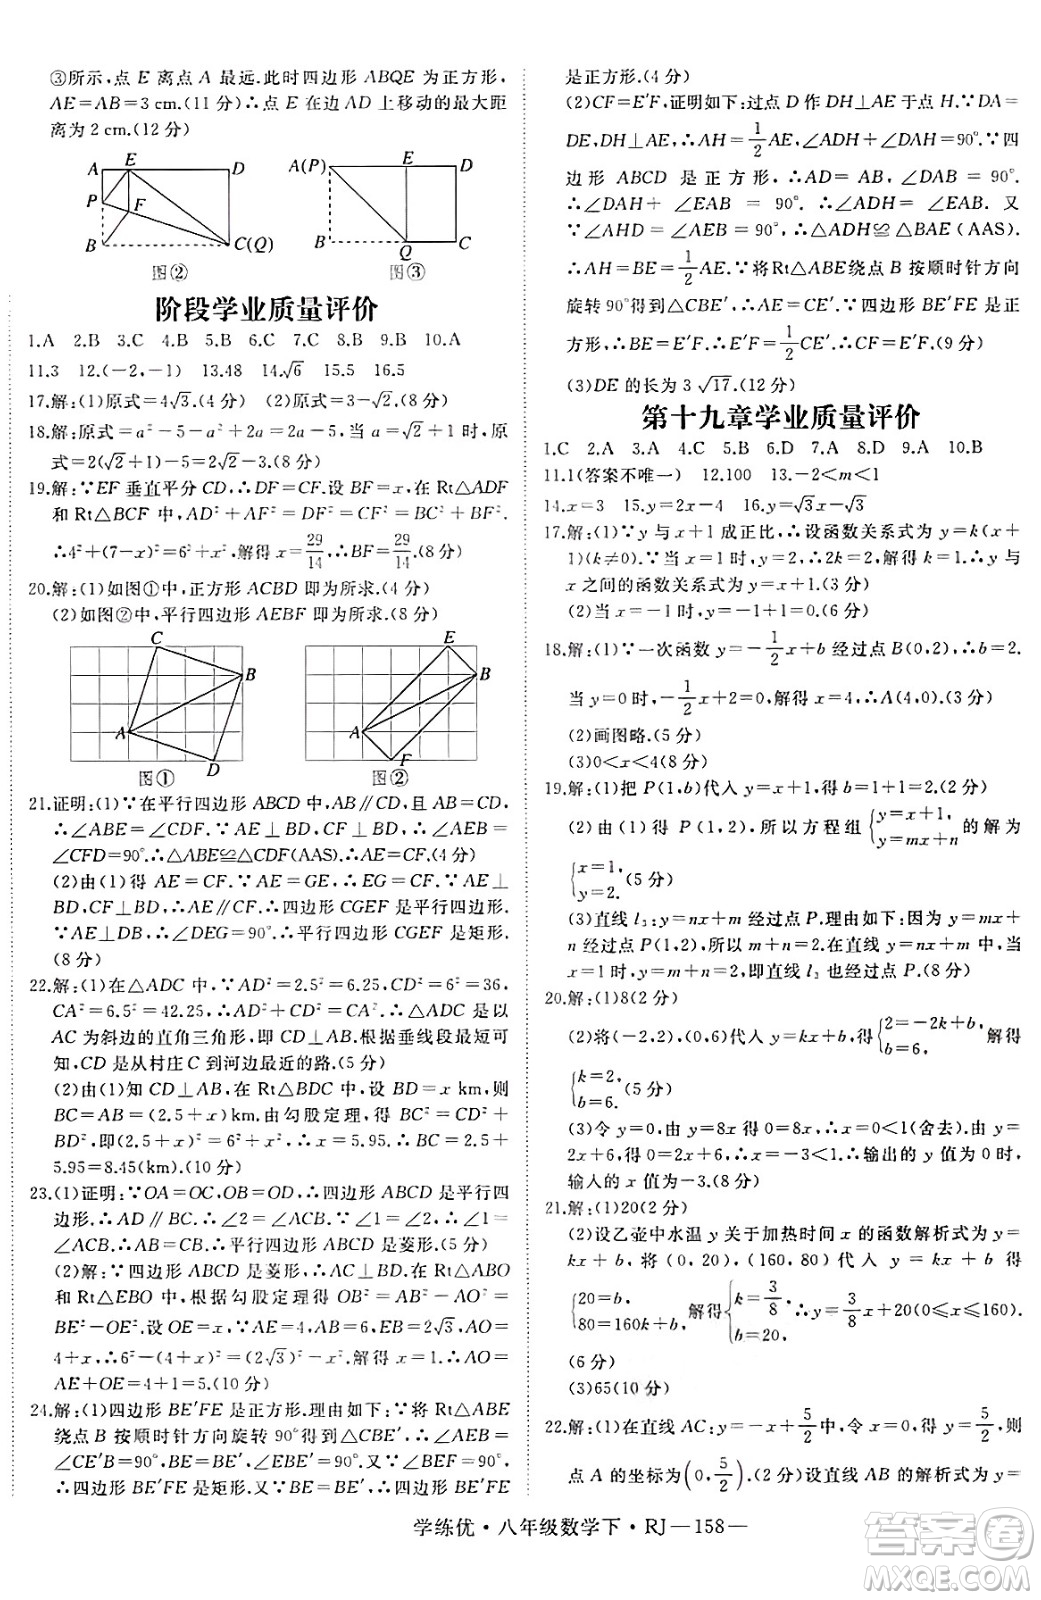 ③所示,点 E 离点 A 最远.此时四边形 ABQE 为正方形,
AE=AB=3 cm.(11 分)∴点 E 在边 AD 上移动的最大距
离为 2 cm.(12 分)
A E D
P F
B C(Q)
图②
A(P) E D
B Q C
图③
阶段学业质量评价
1.A 2.B 3.C 4.B 5.B 6.C 7.C 8.B 9.B 10.A
11.3 12.(-2,-1) 13.48 14.√6 15.5 16.5
17.解:(1)原式=4√3.(4分) (2)原式=3-√2.(8分)
18.解:原式=a²-5-a²+2a=2a-5,当 a=√2+1 时,原
式=2(√2+1)-5=2√2-3.(8 分)
19.解:∵EF 垂直平分 CD,∴DF=CF.设 BF=x,在 Rt△ADF
和 Rt△BCF 中,AD²+AF²=DF²=CF²=BC²+BF²,
∴4²+(7-x)²=6²+x²,解得 x=29/14,∴BF=29/14.(8 分)
20.解:(1)如图①中,正方形 ACBD 即为所求.(4 分)
(2)如图②中,平行四边形 AEBF 即为所求.(8 分)
C B A D
图①
E B A F
图②
21.证明:(1)∵在平行四边形 ABCD 中,AB∥CD,且 AB=CD,
∴∠ABE=∠CDF.∵AE⊥BD,CF⊥BD,∴∠AEB=
∠CFD=90°.∴△ABE≌△CDF(AAS).(4 分)
(2)由(1)得 AE=CF.∵AE=GE,∴EG=CF.∵AE⊥
BD,CF⊥BD,∴EG∥CF.∴四边形 CGEF 是平行四边形.
∵AE⊥DB,∴∠DEG=90°.∴平行四边形 CGEF 是矩形.
(8 分)
22.解:(1)在△ADC 中,∵AD²=2.5²=6.25,CD²=6²=36,
CA²=6.5²=42.25,∴AD²+CD²=CA².∴△ADC 是以
AC 为斜边的直角三角形,即 CD⊥AB.根据垂线段最短可
知,CD 是从村庄 C 到河边最近的路.(5 分)
(2)由(1)知 CD⊥AB,在 Rt△BDC 中,设 BD=x km,则
BC=AB=(2.5+x)km.由勾股定理,得 BC²=CD²+
BD²,即(2.5+x)²=6²+x²,∴x=5.95.∴BC=2.5+
5.95=8.45(km).(10 分)
23.(1)证明:∵OA=OC,OB=OD,∴四边形 ABCD 是平行四
边形.∴AD∥BC.∴∠2=∠ACB.又∵∠1=∠2,∴∠1=
∠ACB.∴AB=CB.∴四边形 ABCD 是菱形.(5 分)
(2)解:∵四边形 ABCD 是菱形,∴AC⊥BD.在 Rt△ABO
和 Rt△EBO 中,根据勾股定理得 OB²=AB²-AO²=
BE²-OE².设 OE=x,∵AE=4,∴AO=AE+OE=
4+x,∴6²-(4+x)²=(2√3)²-x²,解得 x=1,∴AO=
AE+OE=4+1=5.∴AC=2AO=10.(10 分)
24.解:(1)四边形 BE′FE 是正方形.理由如下:∵将 Rt△ABE
绕点 B 按顺时针方向旋转 90°得到△CBE′,∴∠AEB=
∠CE′B=90°,BE=BE′,∠EBE′=90°.又∵∠BEF=90°,
∴四边形 BE′FE 是矩形.又∵BE=BE′,∴四边形 BE′FE
是正方形.(4 分)
(2)CF=E′F,证明如下:过点 D 作 DH⊥AE 于点 H.∵DA=
DE,DH⊥AE,∴AH=1/2AE,∠ADH+∠DAH=90°.∵四
边形 ABCD 是正方形,∴AD=AB,∠DAB=90°.
∴∠DAH+∠EAB=90°.∴∠ADH=∠EAB.又
∵∠AHD=∠AEB=90°,∴△ADH≌△BAE(AAS).
∴AH=BE=1/2AE.∵将Rt△ABE绕点 B 按顺时针方向
旋转 90°得到△CBE′,∴AE=CE′.∵四边形 BE′FE 是正
方形,∴BE=E′F,∴E′F=1/2CE′.∴CF=E′F.(9 分)
(3)DE 的长为 3√17.(12 分)
第十九章学业质量评价
1.C 2.A 3.A 4.C 5.B 6.D 7.A 8.D 9.A 10.B
11.1(答案不唯一) 12.100 13.-2<m<1
14.x=3 15.y=2x-4 16.y=√3x-√3
17.解:(1)∵y 与 x+1 成正比,∴设函数关系式为 y=k(x+
1)(k≠0).∵当 x=1 时,y=2,∴2=2k,解得 k=1,∴y 与
x 之间的函数关系式为 y=x+1.(3 分)
(2)当 x=-1 时,y=-1+1=0.(6 分)
18.解:(1)∵一次函数 y=-1/2x+b 经过点 B(0,2),∴b=2.
当 y=0时,-1/2x+2=0,解得 x=4,∴A(4,0).(3 分)
(2)画图略.(5 分)
(3)0<x<4(7 分)
19.解:(1)把 P(1,b)代入 y=x+1,得 b=1+1=2.(2 分)
(2)由(1)得 P(1,2),所以方程组{y=x+1, y=mx+n 的解为
{x=1, y=2.(5 分)
(3)直线 l₃:y=nx+m 经过点 P.理由如下:因为 y=mx+
n经过点 P(1,2),所以 m+n=2.在直线 y=nx+m 中,当
x=1时,y=n+m=2,因此直线 l₃ 也经过点 P.(8 分)
20.解:(1)8(2 分)
(2)将(-2,2),(0,6)代入 y=kx+b,得{2=-2k+b, b=6, 解得
{k=2, b=6.(5 分)
(3)令 y=0,由 y=8x 得 0=8x,∴x=0<1(舍去).由 y=
2x+6,得 0=2x+6,∴x=-3<1.∴输出的 y 值为 0 时,
输入的 x 值为-3.(8 分)
21.解:(1)20(2 分)
(2)设乙壶中水温 y 关于加热时间 x 的函数解析式为 y=
kx+b,将(0,20),(160,80)代入 y=kx+b 得
{20=b, 80=160k+b, 解得{k=3/8, b=20, ∴y=3/8x+20(0≤x≤160).
(6 分)
(3)65(10 分)
22.解:(1)在直线 AC:y=-x+5/2中,令 x=0,得 y=5/2,则
点 A 的坐标为(0,5/2).∴设直线 AB 的解析式为 y=
学练优·八年级数学下·RJ—158—
答案圈
MXQE.COM